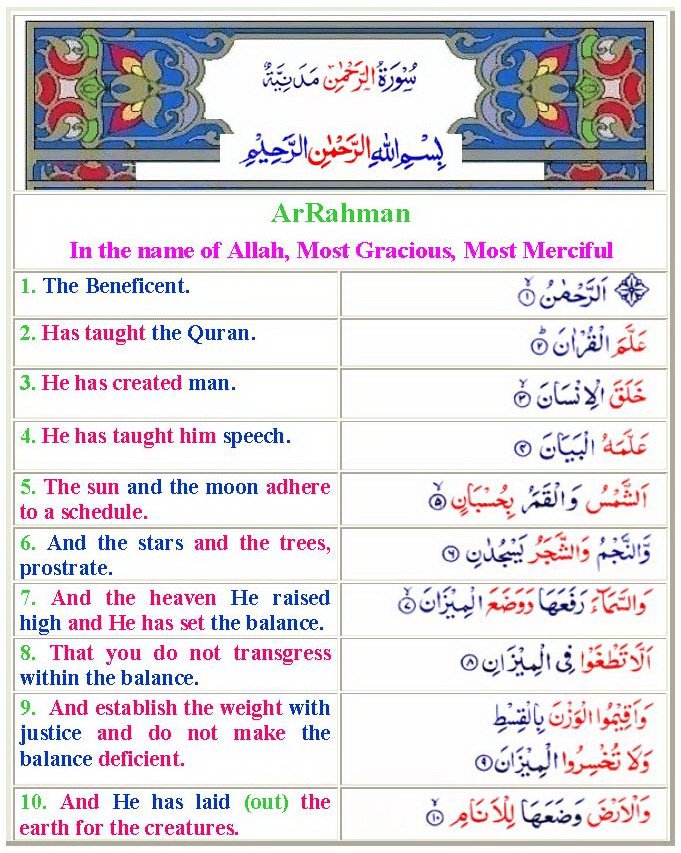 سُوْرَةُ الرَّحْمٰنِ مَدَنِيَّةٌ
بِسْمِ اللهِ الرَّحْمٰنِ الرَّحِيْمِ
ArRahman
In the name of Allah, Most Gracious, Most Merciful
1. The Beneficent.
اَلرَّحْمٰنُ ۙ﴿۱﴾
2. Has taught the Quran.
عَلَّمَ الْقُرْاٰنَ ؕ﴿۲﴾
3. He has created man.
خَلَقَ الْاِنْسَانَ ۙ﴿۳﴾
4. He has taught him speech.
عَلَّمَهُ الْبَيَانَ ﴿۴﴾
5. The sun and the moon adhere
to a schedule.
اَلشَّمْسُ وَالْقَمَرُ بِحُسْبَانٍ ۪﴿۵﴾
6. And the stars and the trees,
prostrate.
وَّالنَّجْمُ وَالشَّجَرُ يَسْجُدٰنِ ﴿۶﴾
7. And the heaven He raised
high and He has set the balance.
وَالسَّمَآءَ رَفَعَهَا وَوَضَعَ الْمِيْزَانَ ۙ﴿۷﴾
8. That you do not transgress
within the balance.
اَلَّا تَطْغَوْا فِى الْمِيْزَانِ ﴿۸﴾
9. And establish the weight with
justice and do not make the
balance deficient.
وَاَقِيْمُوا الْوَزْنَ بِالْقِسْطِ
وَلَا تُخْسِرُوا الْمِيْزَانَ ﴿۹﴾
10. And He has laid (out) the
earth for the creatures.
وَالْاَرْضَ وَضَعَهَا لِلْاَنَامِ ۙ﴿۱۰﴾